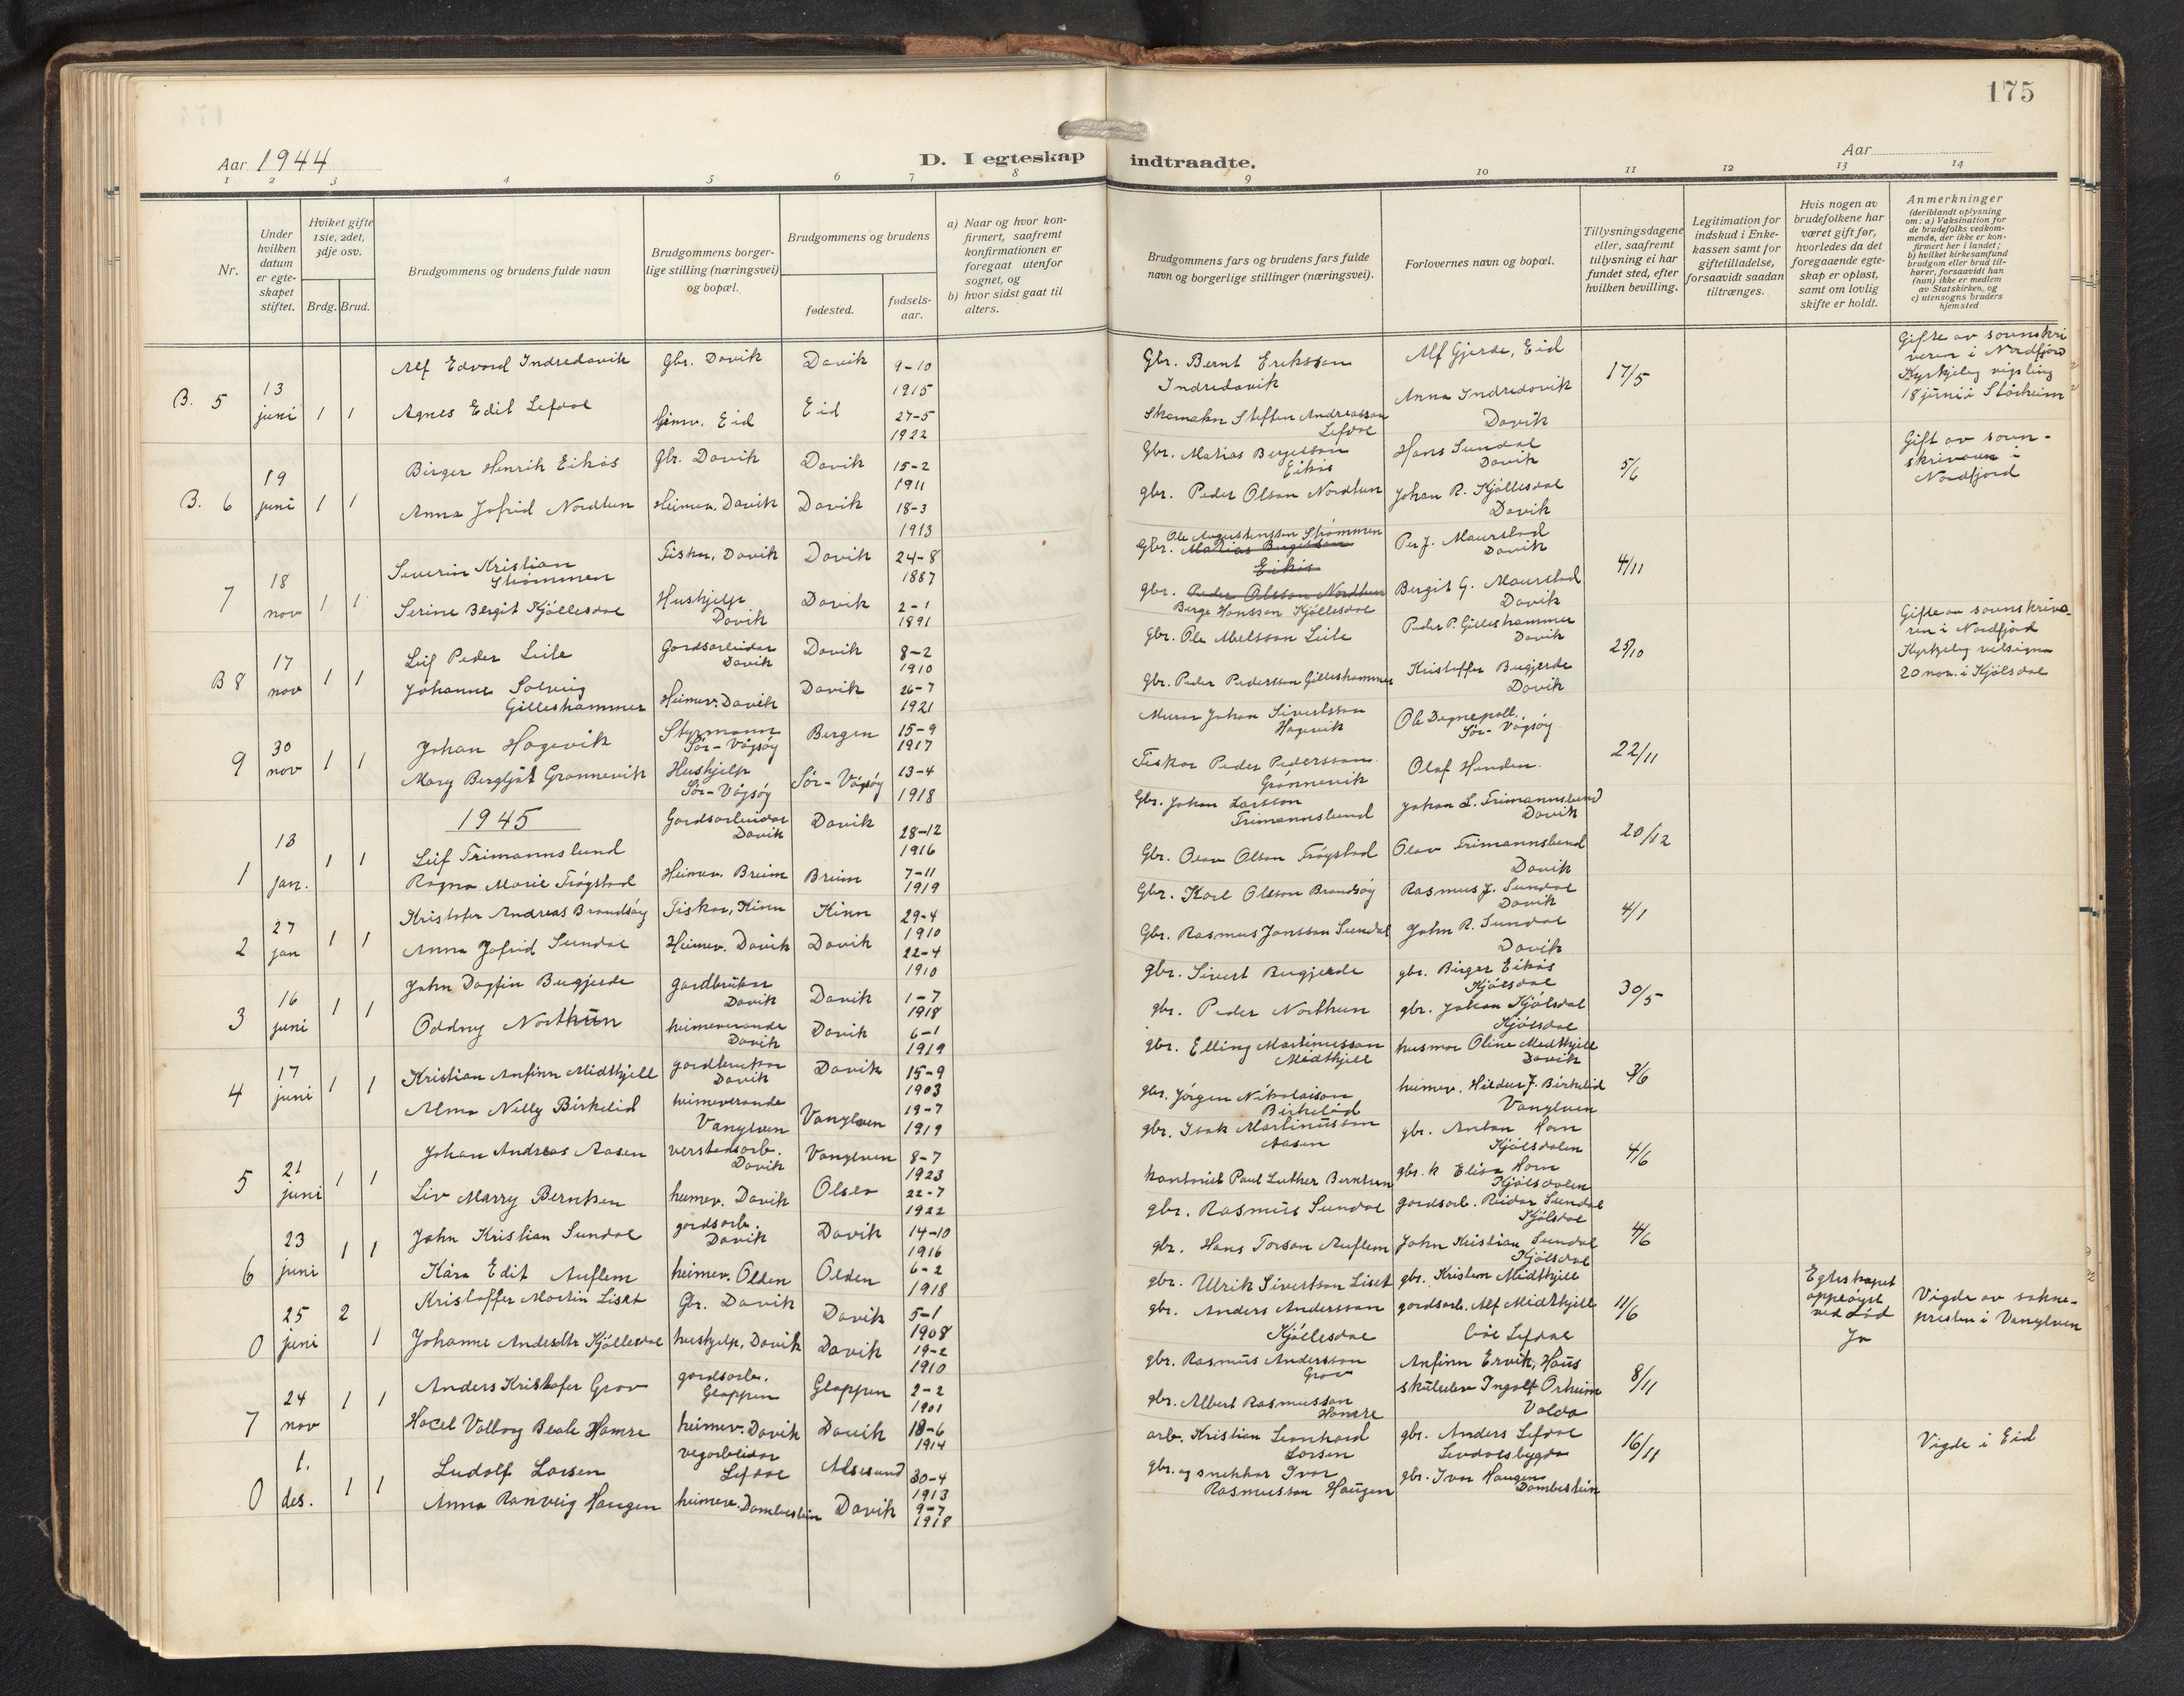 175
Aar 1944
D. I egteskap indtraadte.
Aar
1 2 3 4 5 6 7 8 9 10 11 12 13 14
Nr.
Under hvilken datum er egteskapet stiftet.
Hviket gifte 1ste, 2det, 3dje osv.
Brdg. Brud.
Brudgommens og brudens fulde navn
Brudgommens borgerlige stilling (næringsvei) og bopæl.
Brudgommens og brudens
fødested.
fødselsaar.
a) Naar og hvor konfirmert, saafremt konfirmationen er foregaat utenfor sognet, og
b) hvor sidst gaat til alters.
Brudgommens fars og brudens fars fulde navn og borgerlige stillinger (næringsvei).
Forlovernes navn og bopæl.
Tillysningsdagene eller, saafremt tillysning ei har fundet sted, efter hvilken bevilling.
Legitimation for indskud i Enkekassen samt for giftetilladelse, forsaavidt saadan tiltrænges.
Hvis nogen av brudefolkene har været gift før, hvorledes da det foregaaende egteskap er opløst, samt om lovlig skifte er holdt.
Anmerkninger (deriblandt oplysning om: a) Vaksination for de brudefolks vedkommende, der ikke er konfirmert her i landet; b) hvilket kirkesamfund brudgom eller brud tilhører, forsaavidt han (hun) ikke er medlem av Statskirken, og c) utensogns bruders hjemsted
B. 5 13 juni 1 1
Alf Edvard Indredavik gbr. Davik Davik 9-10 1915
Gbr. Bernt Eriksson Indredavik Alf Gjerde, Eid 17/5
Agnes Edit Lefdal Heimv. Eid Eid 27-5 1922
Skomakar Steffen Andreasson Lefdal Anna Indredavik Davik
Gifte av sorenskriveren i Nordfjord Kyrkjeleg vigsling 18 juni i Stårheim
B. 6 19 juni 1 1
Birger Henrik Eikås gbr. Davik Davik 15-2 1911
Gbr. Matias Bergesson Eikås Hans Sundal Davik 5/6
Anna Jofrid Nordhun Heimev. Davik Davik 18-3 1913
gbr. Peder Olson Nordhun Johan R. Kjöllesdal Davik
Gift av sorenskrivaren i Nordfjord
7 18 nov 1 1
Severin Kristian Strömmen Fiskar, Davik Davik 24-8 1887
Gbr. Ole Augustinsson Strömmen Matias Bergesson Eikås Per J. Maurstad Davik 4/11
Serine Bergit Kjöllesdal Hushjelp Davik Davik 2-1 1891
gbr. Peder Olsson Nordhun Berge Hansson Kjöllesdal Bergit G. Maurstad Davik
B 8 17 nov 1 1
Leif Peder Leite Gardsarbeidar Davik Davik 8-2 1910
gbr. Ole Abelsson Leite Peder P. Gilleshammer Davik 25/10
Johanne Solveig Gilleshammer Heimev. Davik Davik 26-7 1921
gbr. Peder Pedersson Gilleshammer Kristoffer Bugjerde Davik
Gifte av sorenskrivaren i Nordfjord Kyrkjeleg velsigna 20 nov. i Kjölsdal
9 30 nov 1 1
Johan Hagevik Styrmann Sör-Vågsöy Bergen 15-9 1917
Murar Johan Sivertsson Hagevik Ole Degnepoll, Sör-Vågsöy
Mary Bergljót Grönnevik Hushjelp Sör-Vågsöy Sör-Vågsöy 13-4 1918
Fiskar Peder Pedersson Grönnevik Olaf Henden. 22/11
1945
1 13 jan. 1 1
Leif Frimannslund Gardsarbeidar Davik Davik 28-12 1916
Gbr. Johan Larsson Frimannslund Johan L. Frimannslund Davik 20/12
Ragna Marie Frögstad Heimev. Breim Breim 7-11 1919
Gbr. Olav Olson Frögstad Olav Frimannslund Davik
2 27 jan 1 1
Kristofer Andreas Brandsöy Fiskar, Kinn Kinn 29-4 1910
Gbr. Karl Olsson Brandsöy Rasmus J. Sundal Davik 4/1
Anna Jofrid Sundal Heimev. Davik Davik 22-4 1910
Gbr. Rasmus Jonsson Sundal John R. Sundal Davik
3 16 juni 1 1
John Dagfin Bugjerde gardbrukar Davik Davik 1-7 1918
gbr. Sivert Bugjerde gbr. Birger Eikås Kjölsdal 30/5
Oddny Northun heimeverande Davik Davik 6-1 1919
gbr. Peder Northun gbr. Johan Kjölsdal Kjölsdal
4 17 juni 1 1
Kristian Anfinn Midthjell gardbrukar Davik Davik 15-9 1903
gbr. Elling Martinusson Midthjell husmor Oline Midthjell Davik 3/6
Alma Nelly Birkelid heimeverande Vanylven Vanylven 19-7 1919
gbr. Jörgen Nikolaison Birkelid heimev. Hildur J. Birkelid Vanylven
5 21 juni 1 1
Johan Andreas Aasen verstadsarb. Davik Vanylven 8-7 1923
gbr. Isak Martinusson Aasen gbr. Anton Horn Kjölsdalen 4/6
Liv Marry Berntsen heimev. Davik Oslo 22-7 1922
kontorist Paul Luther Berntsen gbr.k Elisa Horn Kjölsdalen
6 23 juni 1 1
John Kristian Sundal gardsarb. Davik Davik 14-10 1916
gbr. Rasmus Sundal gardsarb. Reidar Sundal Kjölsdal 4/6
Kåra Edit Auflem heimev. Olden Olden 6-2 1918
gbr. Hans Torson Auflem John Kristian Sundal Kjölsdal
0 25 juni 2 1
Kristoffer Martin Liset Gbr. Davik Davik 5-1 1908
gbr. Ulrik Sivertson Liset gbr. Kristen Midthjell 11/6
Johanne Andersdtr Kjöllesdal hushjelp, Davik Davik 19-2 1910
gbr. Anders Andersson Kjöllesdal gardsarb. Alf Midthjell Lefdal
Egteskapet opplöyst ved död Ja
Vigde av soknepresten i Vanylven
7 24 nov 1 1
Anders Kristofer Grov gardsarb. Gloppen Gloppen 2-2 1901
gbr. Rasmus Andersson Grov Anfinn Ervik, Haus 8/11
Hacel Valborg Beate Hamre heimev. Davik Davik 18-6 1914
gbr. Albert Rasmusson Hamre skuleelev Ingolf Orheim Volda
0 1. des. 1 1
Ludolf Larsen vegarbeidar Lefdal Alesund 30-4 1913
arb. Kristian Leonhard Larsen gbr. Anders Lefdal 16/11
Anna Ranveig Haugen heimev. Dombestein Davik 9-7 1918
gbr. og snekkar Ivar Rasmusson Haugen gbr. Ivar Haugen Dombestein
Vigde i Eid